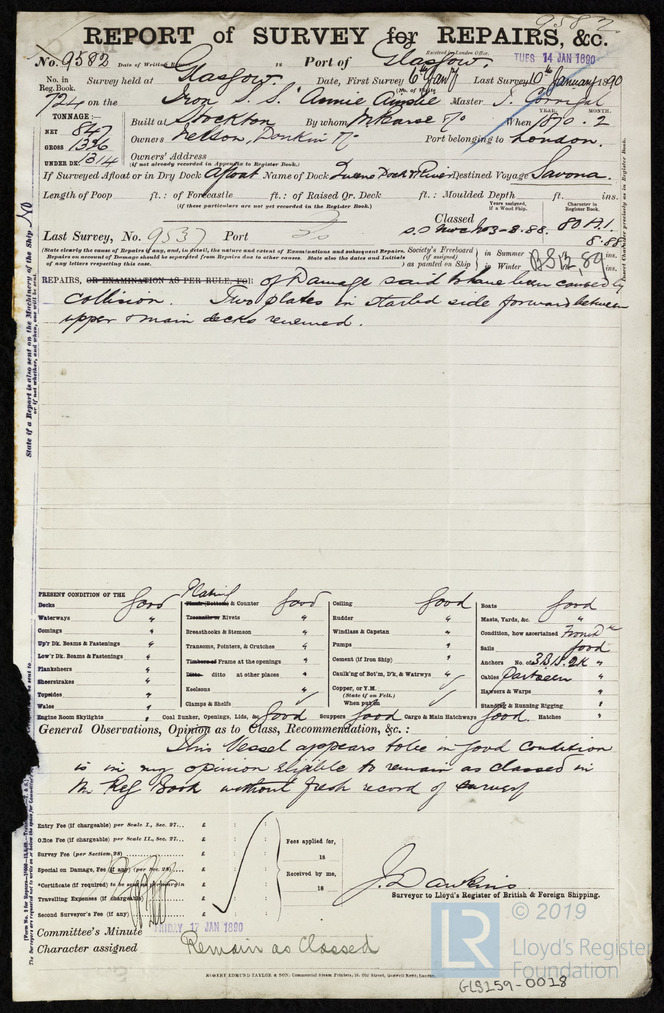 9582
REPORT of SURVEY for REPAIRS, &c.
Received by London Office,
No. 9582 Port of Glasgow. TUES 14 JAN 1890
No. in Reg. Book. Survey held at Glasgow. Date, First Survey 6th Jany Last Survey 10th January 1890
724 on the Iron S.S. "Annie Ainslie" Master J.
TONNAGE:— Built at Stockton By whom When 1870 . 2
YEAR. MONTH.
NET 847
GROSS 1336
UNDER DK. 1314
Owners Nelson, Donkin & Co Port belonging to London.
Owners' Address
(if not already recorded in Appendix to Register Book.)
If Surveyed Afloat or in Dry Dock Afloat Name of Dock Queens Dock & River Destined Voyage Savona.
Length of Poop ft.: of Forecastle ft.: of Raised Qr. Deck ft.: Moulded Depth ft. ins.
(if these particulars are not yet recorded in the Register Book.)
Years assigned, if a Wood Ship. Character in Register Book.
Classed 80 A.1.
8.88
Last Survey, No. 9537 Port Do
(State clearly the cause of Repairs if any, and in detail, the nature and extent of Examinations and subsequent Repairs. Repairs on account of Damage should be separated from Repairs due to other causes. State also the dates and Initials of any letters respecting this case.
Society's Freeboard (if assigned) as painted on Ship in Summer ins. Winter ins.
REPAIRS, OR EXAMINATION AS PER RULE, FOR of Damage said to have been caused by
Collision. Two plates in starbd side forward between
upper & main decks renewed.
State if a Report is also sent on the Machinery of the Ship No
or if not whether, and when, one will be sent.
PRESENT CONDITION OF THE
Decks Good
Waterways "
Comings "
Up'r Dk. Beams & Fastenings "
Low'r Dk. Beams & Fastenings "
Planksheers "
Sheerstrakes "
Topsides "
Wales "
Engine Room Skylights "
Plating
Plank (Bottom) & Counter Good
Treenails or Rivets "
Breasthooks & Stemson "
Transoms, Pointers, & Crutches "
Timbers or Frame at the openings "
Ditto. ditto at other places "
Keelsons "
Clamps & Shelfs
Coal Bunker, Openings, Lids, &c. Good
Ceiling Good
Rudder "
Windlass & Capstan "
Pumps "
Cement (if Iron Ship) "
Caulk'ng of Bot'm, D'k, & Watrwys "
Copper, or Y.M.
(State if on Felt.)
When put on
Scuppers Good Cargo & Main Hatchways Good. Hatches "
Boats Good
Masts, Yards, &c. "
Condition, how ascertained From Dk
Sails Good
Anchors No. of 3.B.1S.2K "
Cables part seen
Hawsers & Warps "
Standing & Running Rigging "
General Observations, Opinion as to Class, Recommendation, &c. :
This Vessel appears to be in good condition
& is in my opinion eligible to remain as classed in
the Reg Book without fresh record of survey
Entry Fee (if chargeable) per Scale I., Sec. 27... £ : :
Office Fee (if chargeable) per Scale II., Sec. 27... £ : :
Survey Fee (per Section 28) £ : :
Special on Damage, Fee (if any) (per Sec. 28) £ : :
*Certificate (if required) to be sent as per margin £
Travelling Expenses (if chargeable) £
Second Surveyor's Fee (if any) £
Fees applied for,
18
Received by me,
18
J. Dawkins
Surveyor to Lloyd's Register of British & Foreign Shipping.
Committee's Minute FRIDAY 17 JAN 1890
Character assigned Remain as Classed
ROBERT EDMUND TAYLOR & SON, Commercial Steam Printers, 19, Old Street, Goswell Road, London.
© 2019
LR
Lloyd's Register
Foundation
GLS159-0018